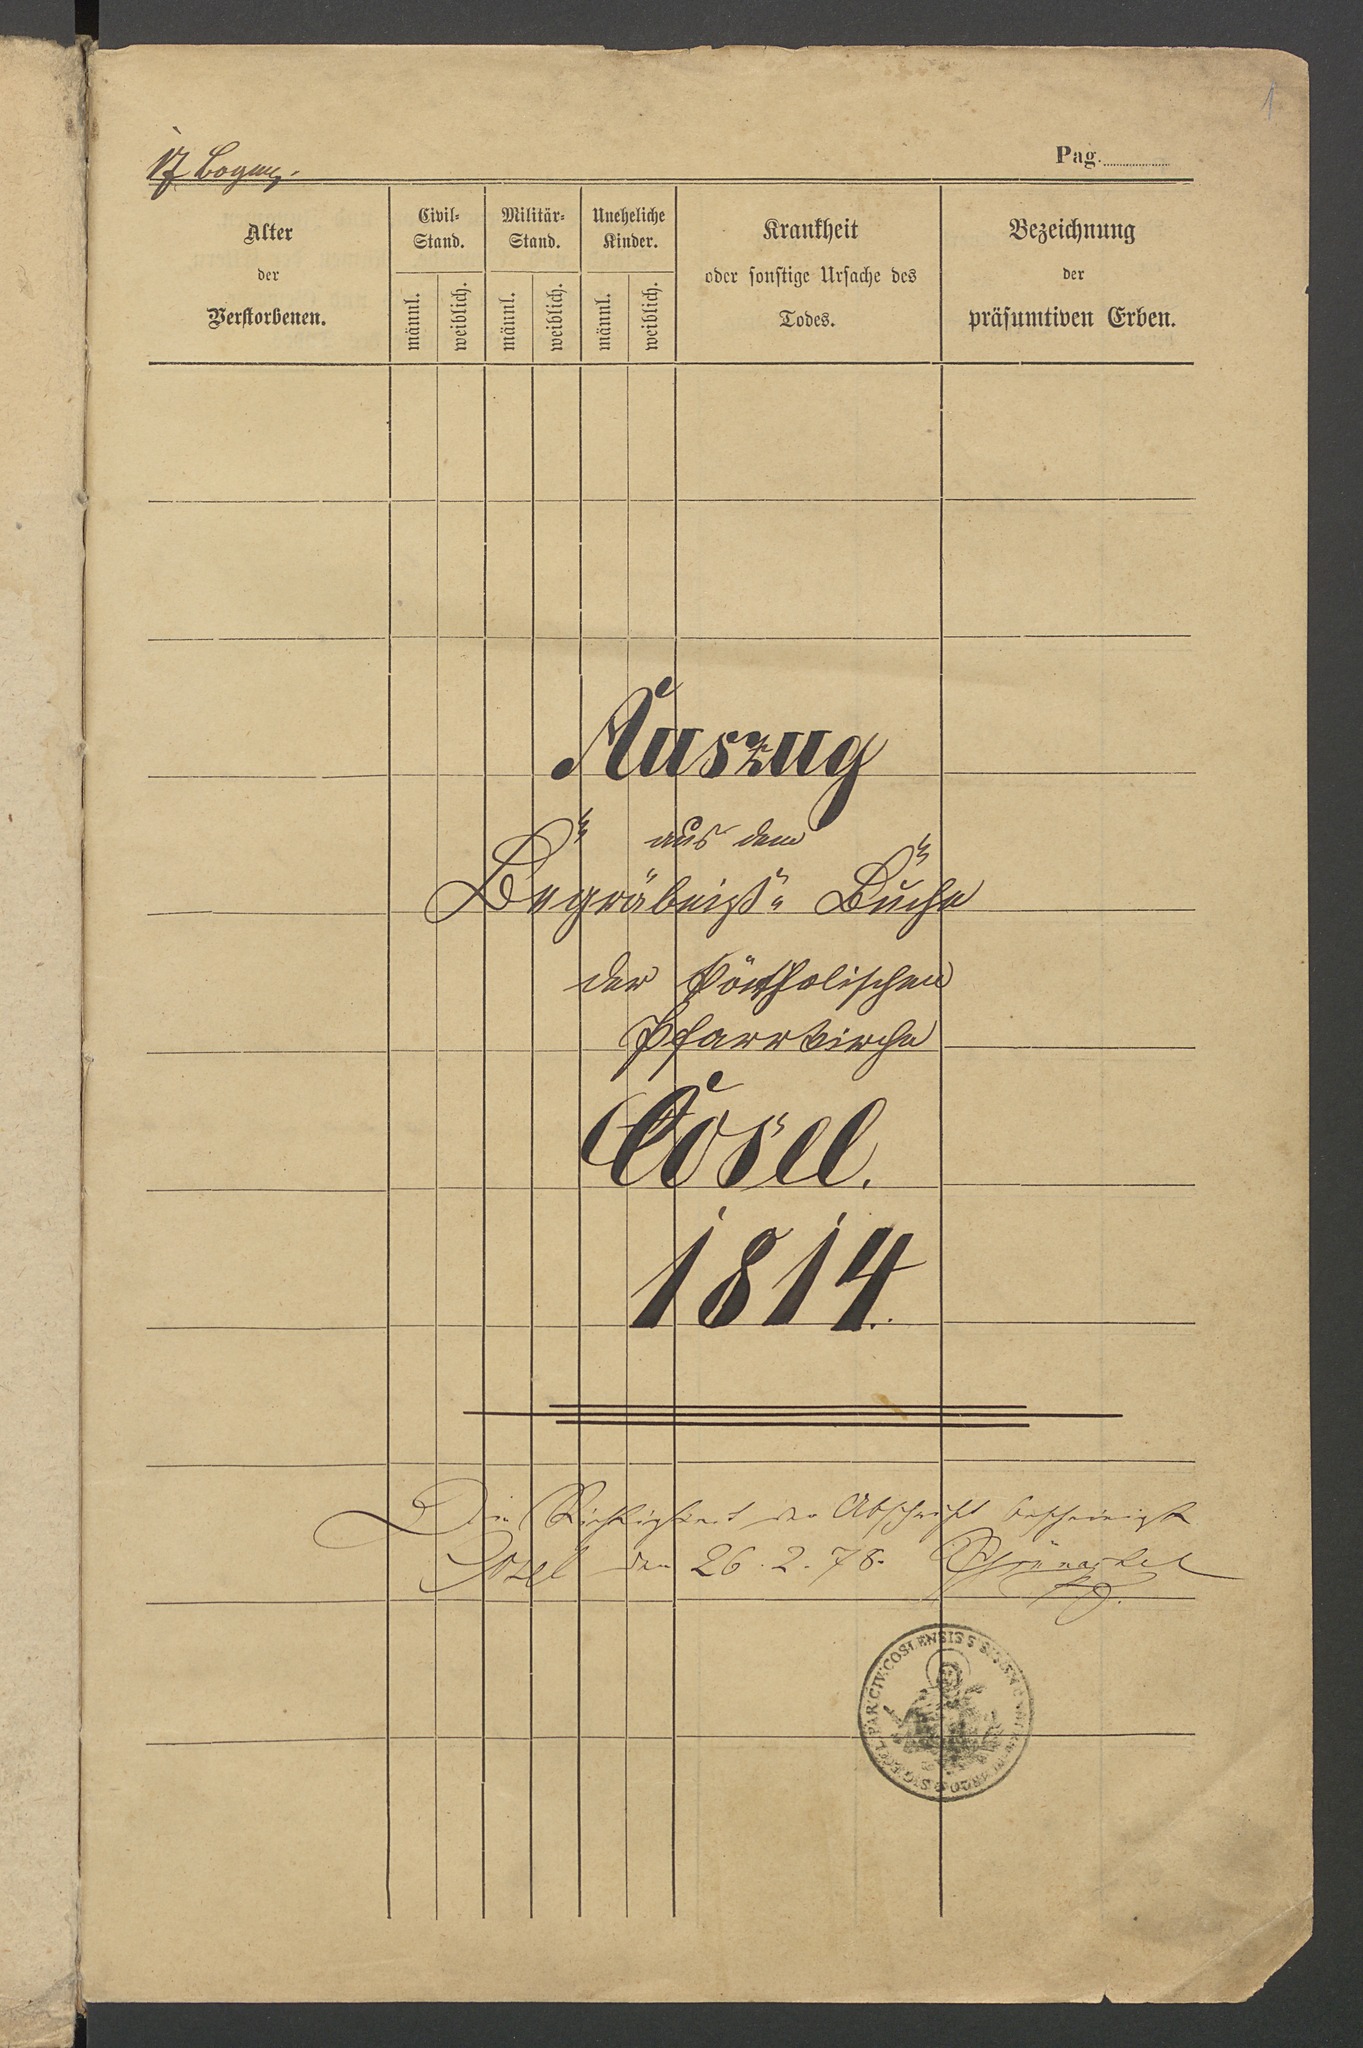 1
17 Bogen.
Pag.
Alter
der
Verstorbenen.
Civil-
Stand.
männl.
weiblich.
Militär-
Stand.
männl.
weiblich.
Uneheliche
Kinder.
männl.
weiblich.
Krankheit
oder sonstige Ursache des
Todes.
Bezeichnung
der
präsumtiven Erben.
Auszug
aus dem
Begräbniß- Buche
der katholischen
Pfarrkirche
Cosel.
1814.
Die Richtigkeit der Abschrift bescheinigt
Cosel den 26. 2. 78.
PAR: CIV: COSLENSIS S SIGISM